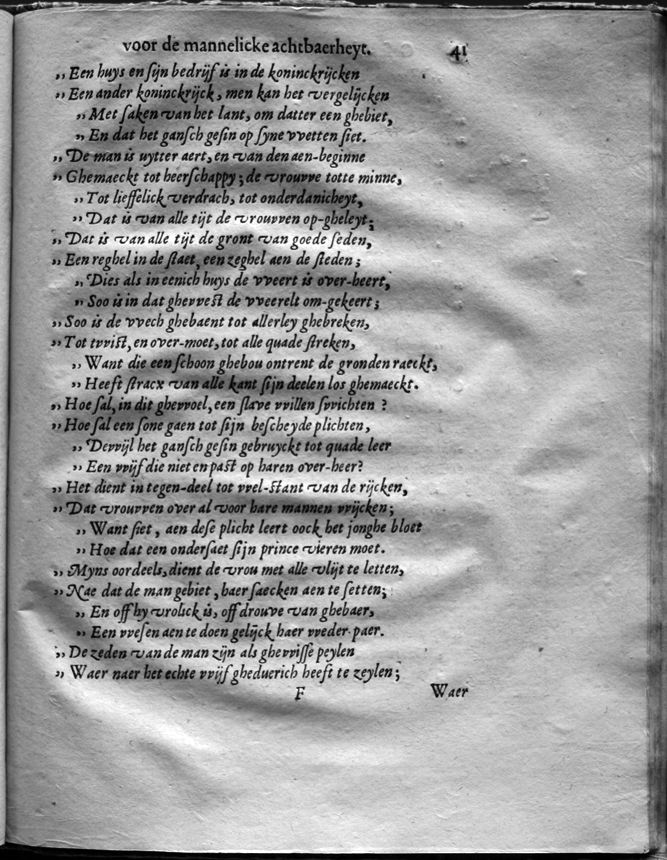 voor de mannelicke achtbaerheyt. 41
„ Een huys en ſijn bedrijf is in de koninckrijcken
„ Een ander koninckrijck, men kan het vergelijcken
„ Met ſaken van het lant, om datter een ghebiet,
„ En dat het ganſch geſin op ſyne vvetten ſiet.
„ De man is uytter aert, en van den aen-beginne
„ Ghemaeckt tot heerſchappy; de vrouvve totte minne,
„ Tot lieffelick verdrach, tot onderdanicheyt,
„ Dat is van alle tijt de vrouvven op-gheleyt;
„ Dat is van alle tijt de gront van goede ſeden,
„ Een reghel in de ſtaet, een zeghel aen de ſteden;
„ Dies als in eenich huys de vveert is over-heert,
„ Soo is in dat ghevveſt de vveerelt om-gekeert;
„ Soo is de vvech ghebaent tot allerley ghebreken,
„ Tot tvviſt, en over-moet, tot alle quade ſtreken,
„ Want die een ſchoon ghebou ontrent de gronden raeckt,
„ Heeft ſtracx van alle kant ſijn deelen los ghemaeckt.
„ Hoe ſal, in dit ghevvoel, een ſlave vvillen ſvvichten ?
„ Hoe ſal een ſone gaen tot ſijn beſcheyde plichten,
„ Devvijl het ganſch geſin gebruyckt tot quade leer
„ Een vvijf die niet en paſt op haren over-heer?
„ Het dient in tegen-deel tot vvel-ſtant van de rijcken,
„ Dat vrouvven over al voor hare mannen vvijcken;
„ Want ſiet, aen deſe plicht leert oock het jonghe bloet
„ Hoe dat een onderſaet ſijn prince vieren moet.
„ Myns oordeels, dient de vrou met alle vlijt te letten,
„ Nae dat de man gebiet, haer ſaecken aen te ſetten;
„ En off hy vrolick is, off drouve van ghebaer,
„ Een vveſen aen te doen gelijck haer vveder-paer.
„ De zeden van de man zijn als ghevviſſe peylen
„ Waer naer het echte vvijf gheduerich heeft te zeylen;
F Waer